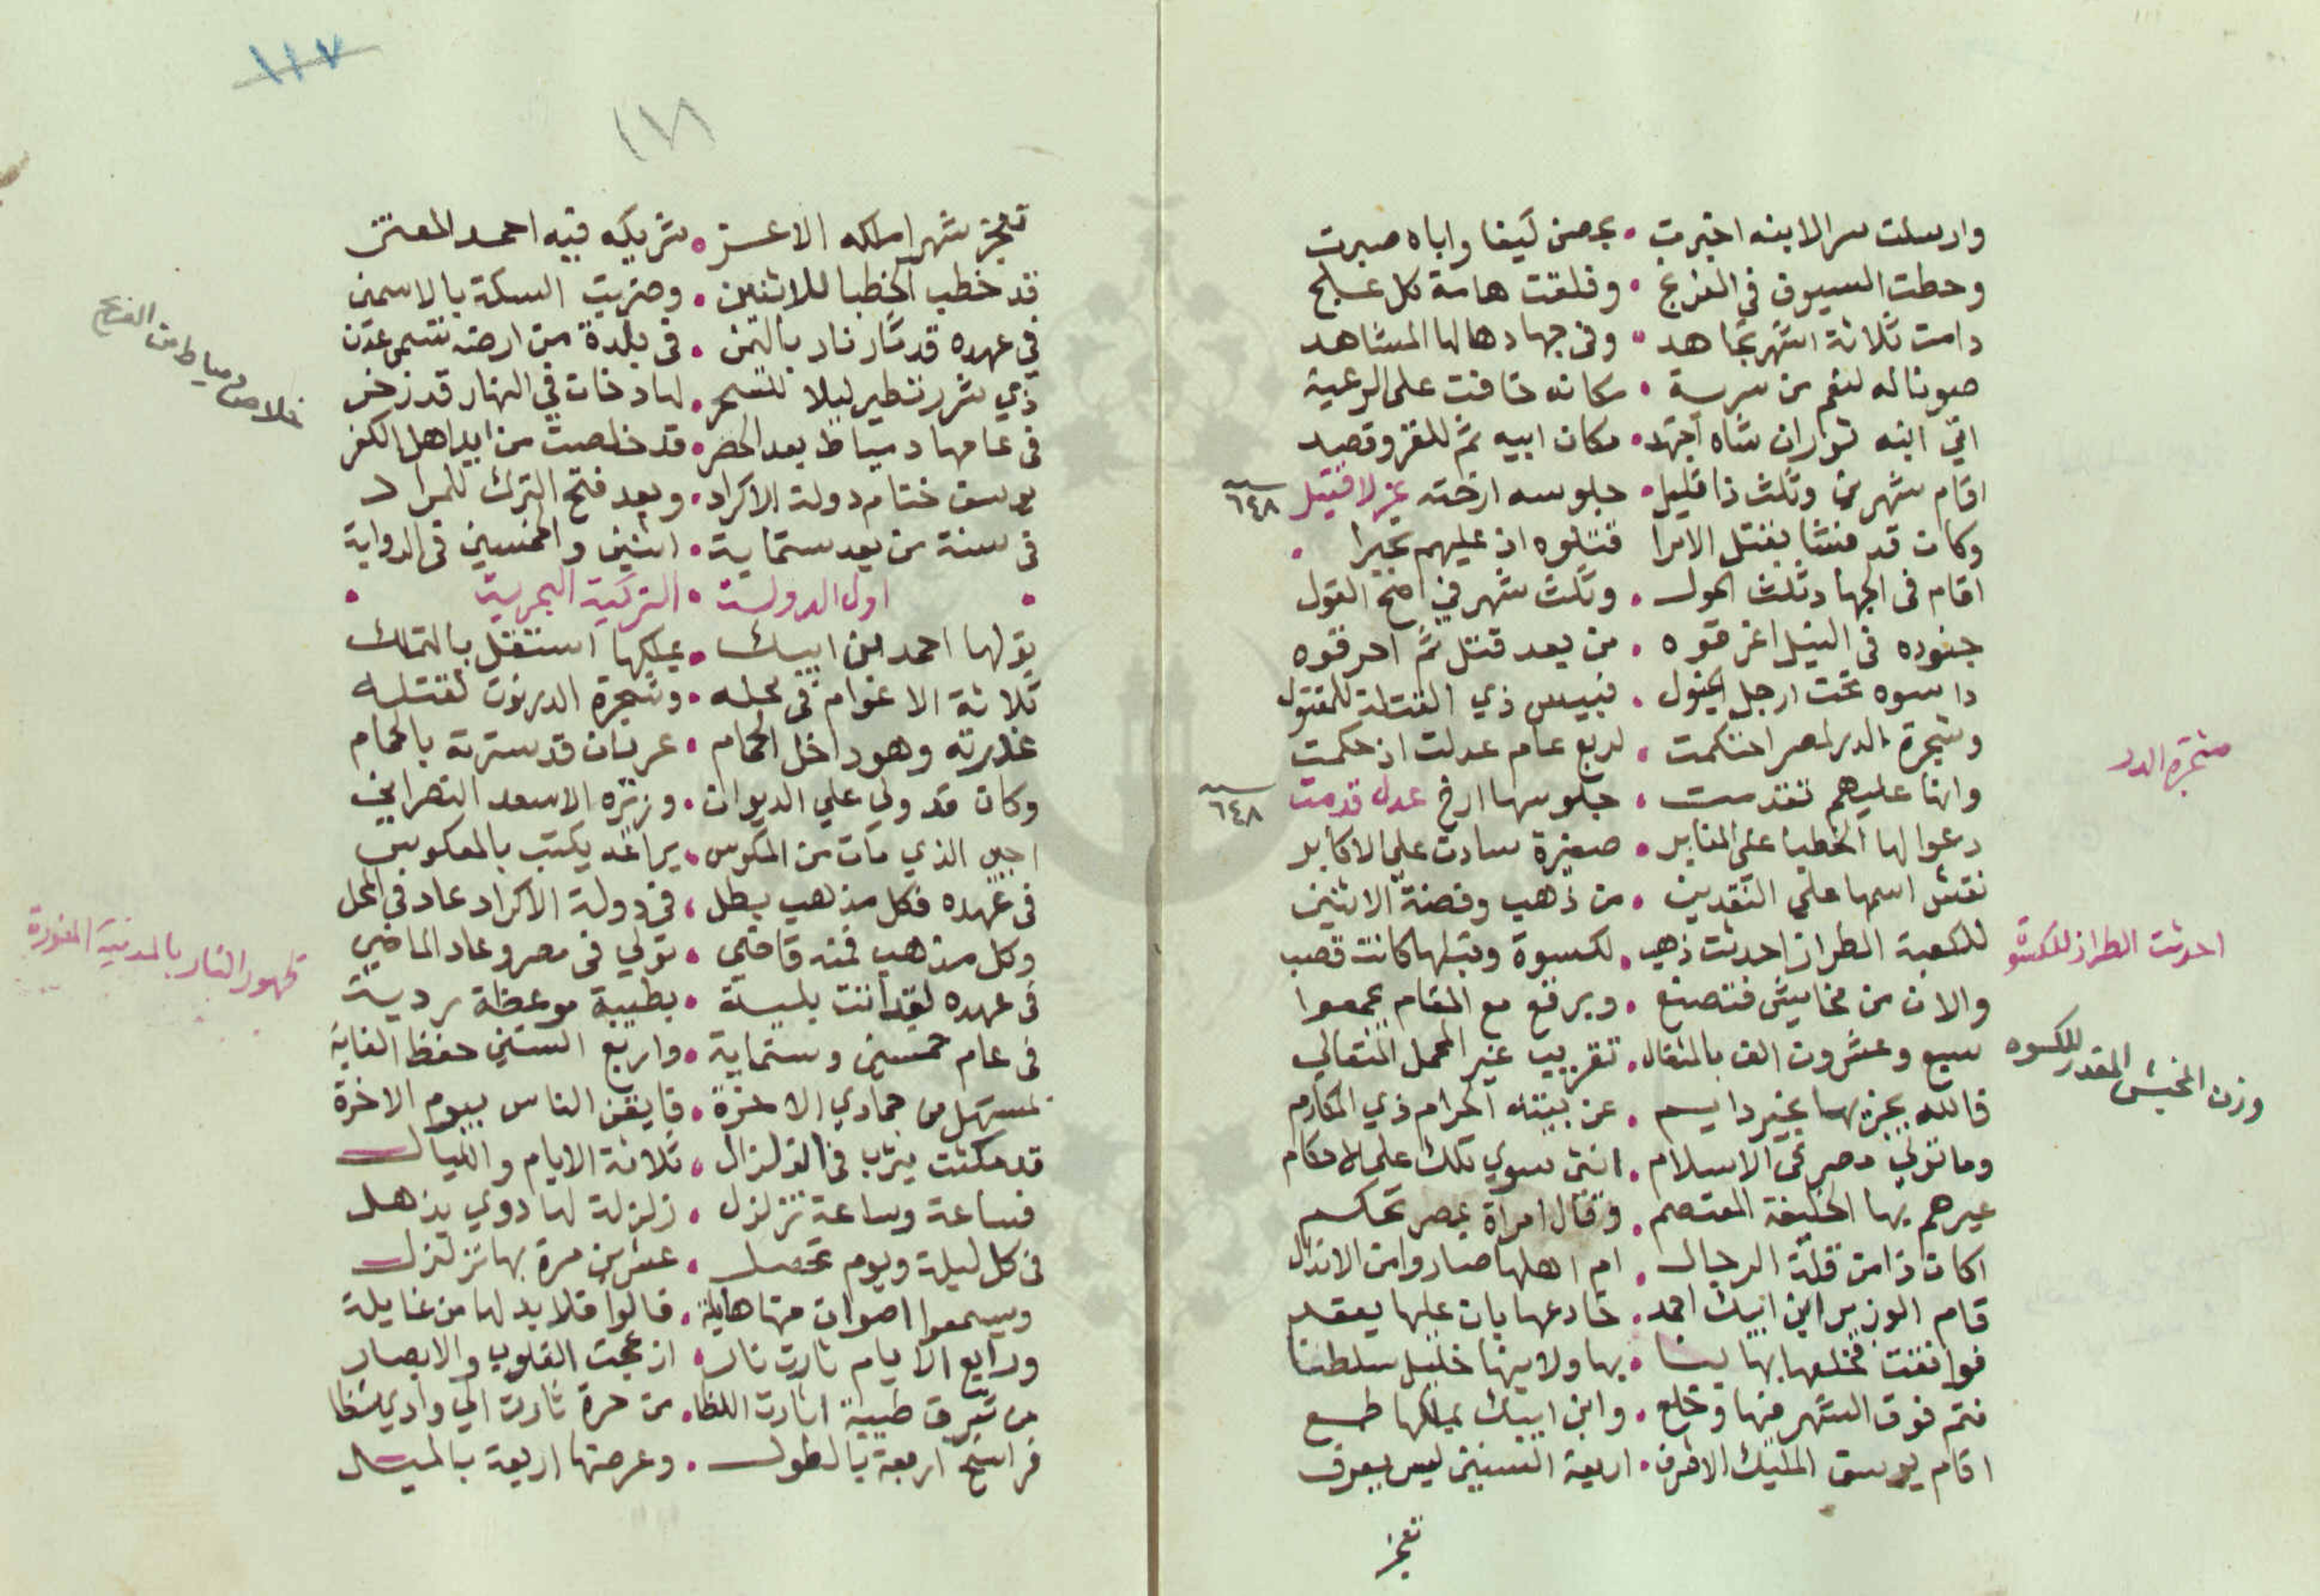 وارسلت سرالابنه اخبرت • بحصن كيفا واباه صبرت
وحطت السيوف فى الفرنج • وفلقت هامة كل علج
دامت ثلاثة اشهر تجاهد • وفى جهادها لها المشاهد
صوناله لنفم من سرية • مكانه خافت على الرعية
اتي ابنه توران شاه اجتهد • مكان ابيه ثم للغز وقصد
اقام شهرين وثلث ذا قليل • جلوسه ارخته عزلا قتيل ٦٤٨
وكان قد فشا بقتل الامرا قتلوه اذ عليهم تجبرا •
اقام فى الجهاد ثلث الحول • وثلث شهر في اصح القول
جنوده فى النيل اغرقوه • من بعد قتل ثم احرقوه
داسوه تحت ارجل الخيول • فبيس ذي القتلة للمقتول
وشجرة الدر لمصر احتكمت • لربع عام عدلت اذ حكمت
وانها عليهم تقدمت • جلوسها ارخ عدل قدمت ٦٤٨
دعوا لها الخطبا على المنابر • صغيرة سادت على الاكابر
نقش اسمها على النقدين • من ذهب وفضة الاثنين
للكعبة الطراز احدثت ذهب • لكسوة وقبلها كانت قصب
والان من مخاييش فتصنع • وبرقع مع المقام يجمعوا
سبع وعشرون الف بالمثقال • تقريب غير المحمل المتعالي
فالله يجزيها بخير دايم • عن بيته الحرام ذي المكارم
وما تولي مصر فى الاسلام • انثى سوي تلك على الاحكام
عيرهم بها الخليفة المعتصم • وقال امراة بمصر تحكم
اكان ذا من قلة الرجال • ام اهلها صاروا من الانذال
قام الوزير ابن ايبك احمد • خادعها بان عليها يعقد
فوافقت فخلعها بها لبنا • بها ولابنها خليل سلطنا
فتم فوق الشهر منها وخلع • وابن ايبك بملكها طمع
اقام يوسف المليك الاشرف • اربعة السنين ليس يعرف
تعجز
شجرة الدر
احدثت الطراز للكسوة
وزن المخيش المقدر للكسوه
١١٧
١٧٨
تعجز شهرا ملكه الاعز • شريكه فيه احمد المعتز
قد خطب الخطبا للاثنين • وضربت السكة بالاسمين
في عهده قد ثار نار باليمن • فى بلدة من ارضه تسمى عدن
ذي شرر تطير ليلا للسحر • لها دخان في النهار قد زخر
فى عامها دمياط بعد الحصر • قد خلصت من ايد اهل الكفر
يوسف ختام دولة الاكراد • وبعد فتح الترك للمراد
فى سنة من بعد ستماية • اثنين والخمسين فى الرواية
• اول الدولة • التركية البحرية •
تولها احمد ابن ايبك • بملكها استقل بالتملك
ثلاثة الاعوام فى محله • وشجرة الدر نوت لقتله
غدرته وهو داخل الحمام • عريان قد سترته بالحمام
وكان قد ولي علي الديوان • وزيره الاسعد النصراني
احيى الذي مات من المكوس • يراعه يكتب بالمعكوس
فى عهده فكل مذهب بطل • فى دولة الاكراد عاد فى المحل
وكل مذهب فمنه قاضي • تولي فى مصر وعاد الماضي
فى عهده لقد اتت بلية • بطيبة موعظة ردية
فى عام خمسين وستماية • واربع السنين حفظ الغاية
لمستهل من جمادي الاخرة • فايقن الناس بيوم الاخرة
قد مكثت يثرب فى الزلزال • ثلاثة الايام والليال
فساعة وساعة تزلزل • زلزلة لها دوي يذهل
فى كل ليلة ويوم تحصل • عشر من مرة بها تزلزل
ويسمعوا اصوات منها هايلة • قالوا فلا بد لها من غايلة
ورابع الايام ثارت نار • ازعجت القلوب والابصار
من شرق طيبة اثارت اللظا • من حرة ثارت الي وادي شظا
فراسخ اربعة بالطول • وعرضها اربعة بالميل
خلاص دمياط من الفرنج
ظهور النار بالمدينة المنورة